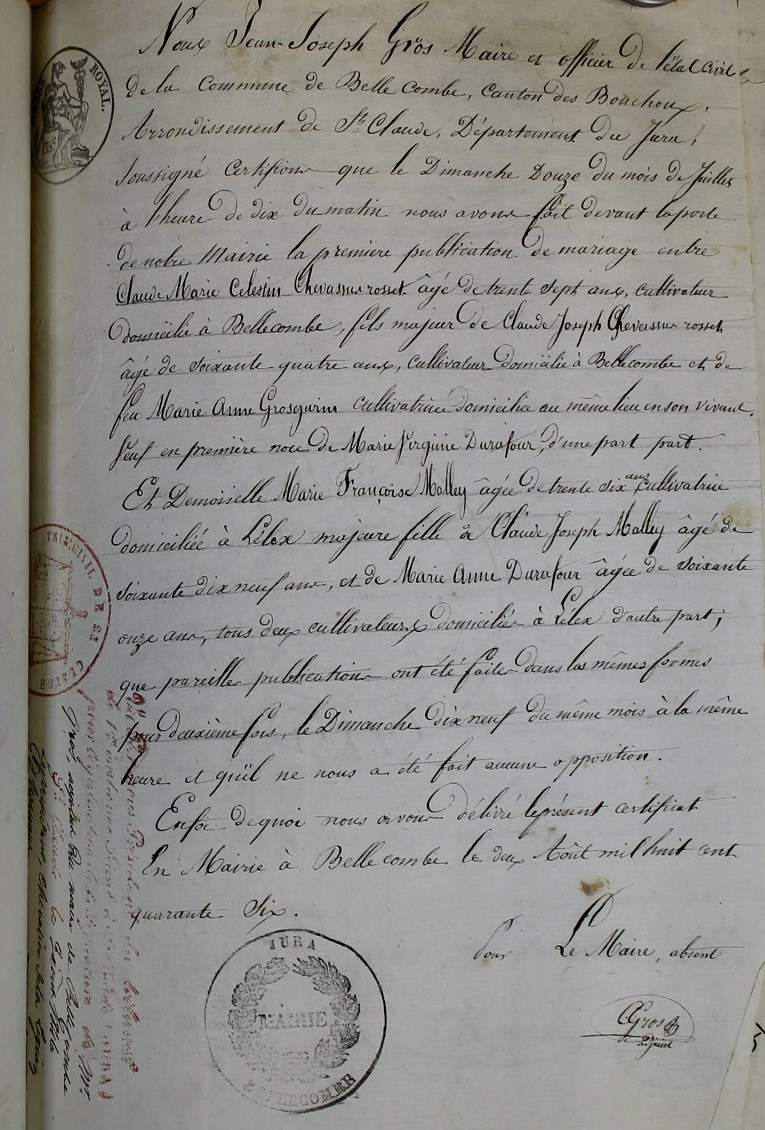 Nous Jean-Joseph Gros Maire et officier de l'état civil
de la Commune de Belle combe, Canton des Bouchoux,
Arrondissement de St Claude, Département du Jura,
Soussigné Certifions que le Dimanche Douze du mois de Juillet
à l'heure de dix du matin nous avons fait devant la porte
de nôtre Mairie la premiere publication de mariage entre
Claude Marie Celestin Chevassus rosset âgé de trente Sept ans, cultivateur
domicilié à Bellecombe, fils majeur de Claude Joseph Chevassus rosset
âgé de soixante quatre ans, cultivateur domicilié à Bellecombe et de
feu Marie Anne Grosgurin cultivatrice domicilia au même lieu en son vivant.
Veuf en première noce de Marie Virginie Durafour, d'une part part.
Et Demoiselle Marie Françoise Molley âgée de trente six ans cultivatrice
domiciliée à Lélex majeure fille de Claude Joseph Molley âgé de
soixante dix neuf ans, et de Marie Anne Durafour âgée de soixante
onze ans, tous deux cultivateurs domiciliés à Lélex d'autre part;
que pareille publication ont été faite dans les mêmes formes
pour deuxième fois, le Dimanche dix neuf du même mois à la même
heure et qu'il ne nous a été fait aucune opposition.
En foi de quoi nous avons délivré le présent certificat
En Mairie à Belle combe le deux Août mil huit cent
quarante Six.
Pour Le Maire, absent
Gros
adjoint
ROYAL.
TRIB. CIVIL DE ST
CLAUDE
JURA
MAIRIE
BELLECOMBE